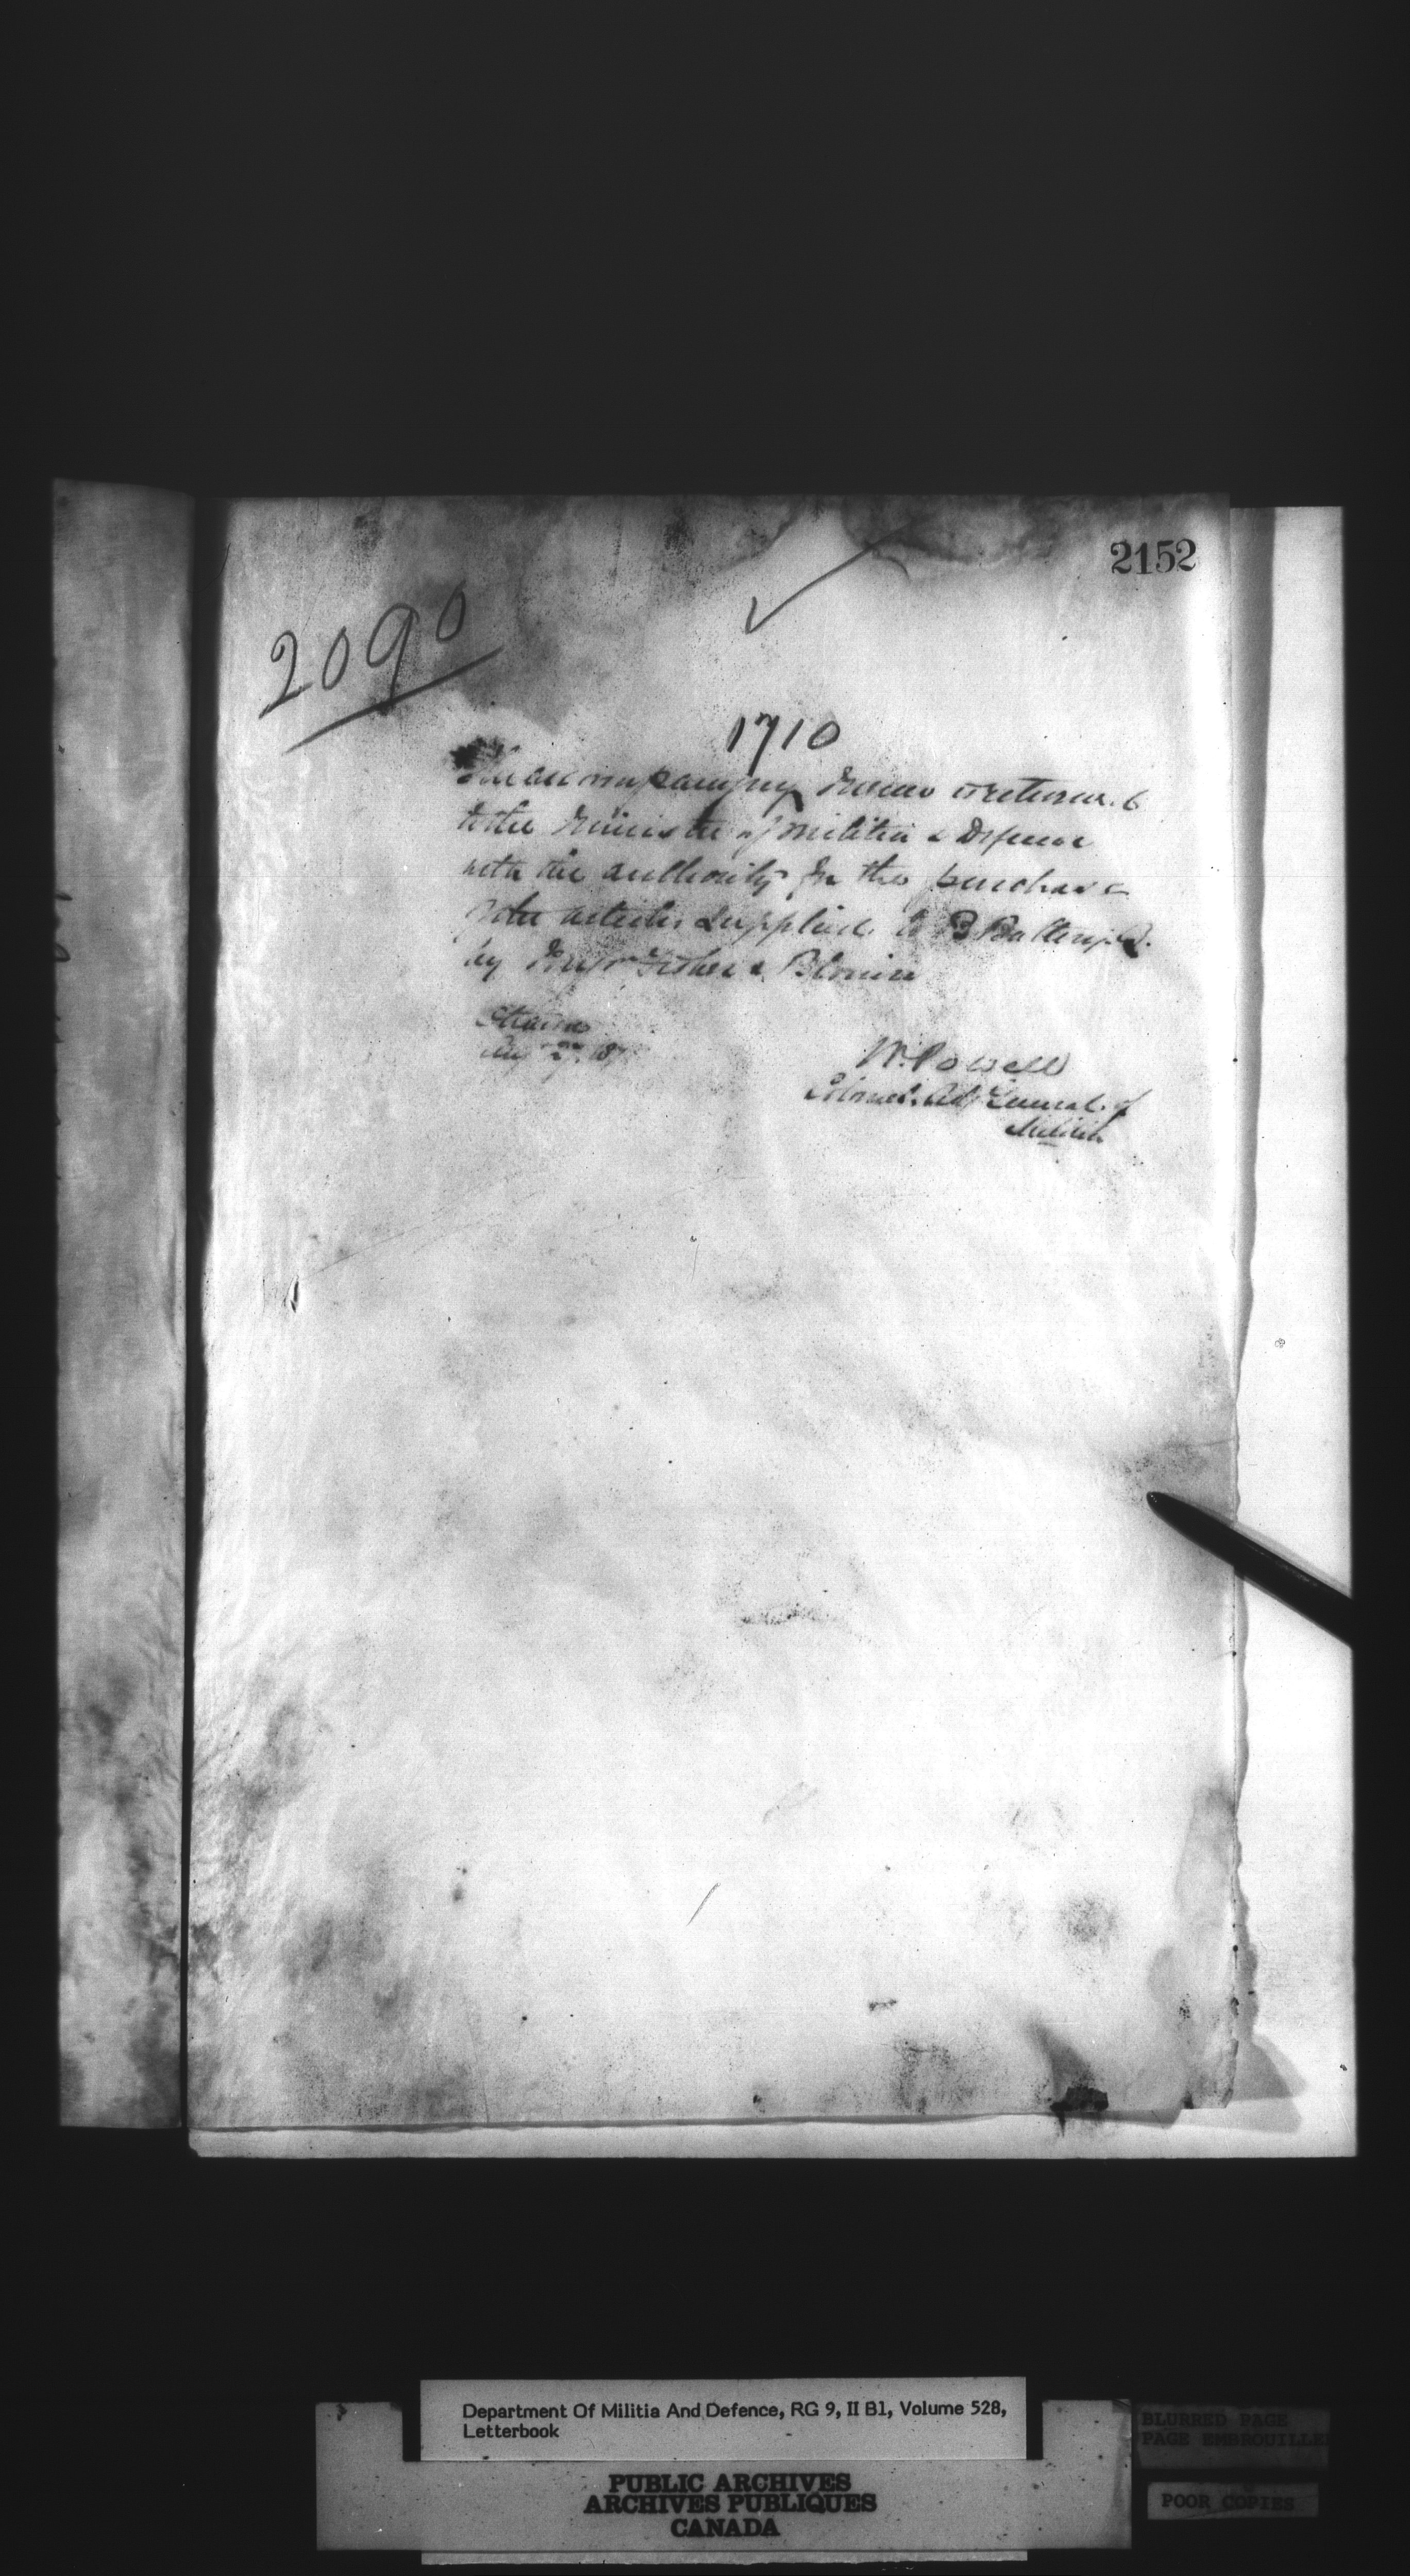 2152
2090
1710
The accompanying memo is returned
to the Minister of Militia & Defence
with the authority for the purchase
of the articles supplied to B Battery
by Messrs Fisher & Blouin
Ottawa
Aug 27. 187
W. Powell
Colonel. Adj General of
Militia
Department Of Militia And Defence, RG 9, II B1, Volume 528,
Letterbook
PUBLIC ARCHIVES
ARCHIVES PUBLIQUES
CANADA
BLURRED PAGE
PAGE EMBROUILLE
POOR COPIES